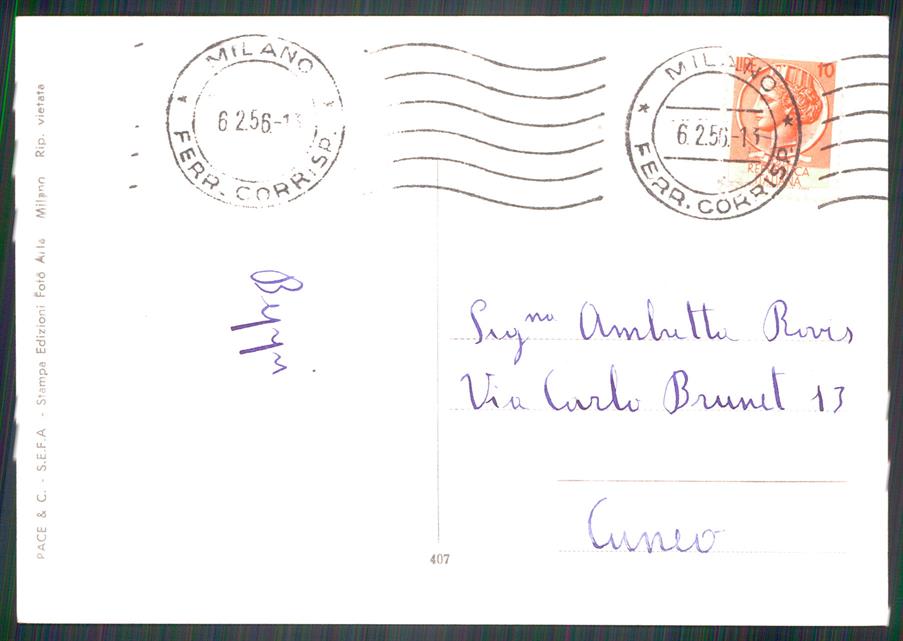 MILANO
6.2.56-13
FERR. CORRISP.
MILANO
6.2.56-13
FERR. CORRISP.
10
REPUBBLICA
ITALIANA
PACE & C. - S.E.F.A. - Stampa Edizioni Foto Milano Rip. vietata
Sig.na Ambretta Rovis
Via Carlo Brunet 13
Cuneo
407